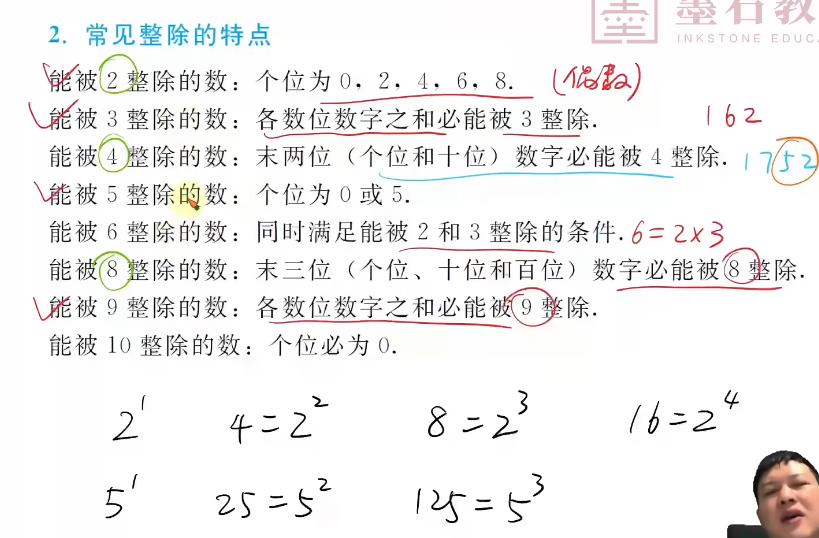 墨石教
INKSTONE EDUC
2. 常见整除的特点
能被 2 整除的数：个位为 0，2，4，6，8. (偶数)
能被 3 整除的数：各数位数字之和必能被 3 整除. 162
能被 4 整除的数：末两位（个位和十位）数字必能被 4 整除. 1752
能被 5 整除的数：个位为 0 或 5.
能被 6 整除的数：同时满足能被 2 和 3 整除的条件. 6=2×3
能被 8 整除的数：末三位（个位、十位和百位）数字必能被 8 整除.
能被 9 整除的数：各数位数字之和必能被 9 整除.
能被 10 整除的数：个位必为 0.
2¹ 4=2² 8=2³ 16=2⁴
5¹ 25=5² 125=5³